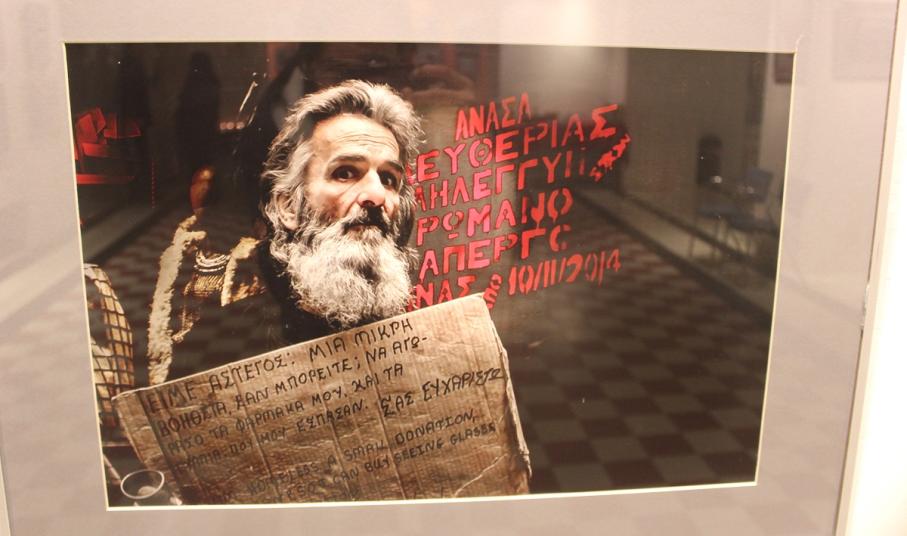 ΑΝΑΣΑ
ΕΥΘΕΡΙΑΣ
ΗΛΕΓΓΥΗ
ΡΩΜΑΝΟ
ΑΠΕΡΓΟ
ΝΑΣ 10/11/2014
ΕΙΜΕ ΑΣΤΕΓΟΣ: ΜΙΑ ΜΙΚΡΗ
ΒΟΗΘΕΙΑ, ΕΑΝ ΜΠΟΡΕΙΤΕ; ΝΑ ΑΓΩ-
ΡΑΣΟ ΤΑ ΦΑΡΜΑΚΑ ΜΟΥ. ΚΑΙ ΤΑ
ΓΥΑΛΙΑ ΠΟΥ ΜΟΥ ΕΣΠΑΣΑΝ. ΣΑΣ ΕΥΧΑΡΙΣΤΩ
HOMELESS A SMALL DONATION,
CAN BUY SEEING GLASSES